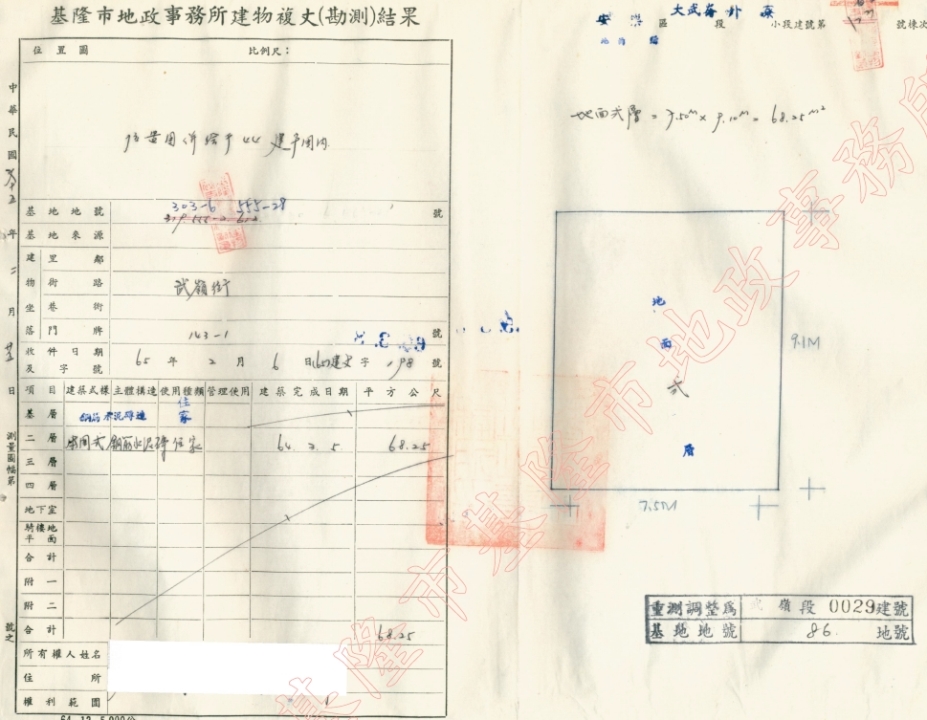 基隆市地政事務所建物複丈(勘測)結果
位置圖 比例尺：
基地地號 303-6 555-28 號
基地來源
建 里鄰
物 街路 武嶺街
坐 巷衖
落 門牌 143-1 號
收件日期 65年2月6日
及字號 198號
項目 建築式樣 主體構造 使用種類 管理使用 建築完成日期 平方公尺
基層 鋼筋水泥磚造 住家
二層 鋼筋水泥磚 住家 64.2.5 68.25
三層
四層
地下室
騎樓地平面
合計
附一
附二
合計 68.25
所有權人姓名
住所
權利範圍 1
64.12.5,000份
中華民國
年
二
月
日
測量圖幅第
號之
安樂區 大武崙 段 小段建號第 號棟次
地面弍層 = 7.50M × 9.10M = 68.25M²
地面弍層
9.1M
7.5M
重測調整為 嶺段 0029建號
基地地號 86. 地號
基隆市地政事務所